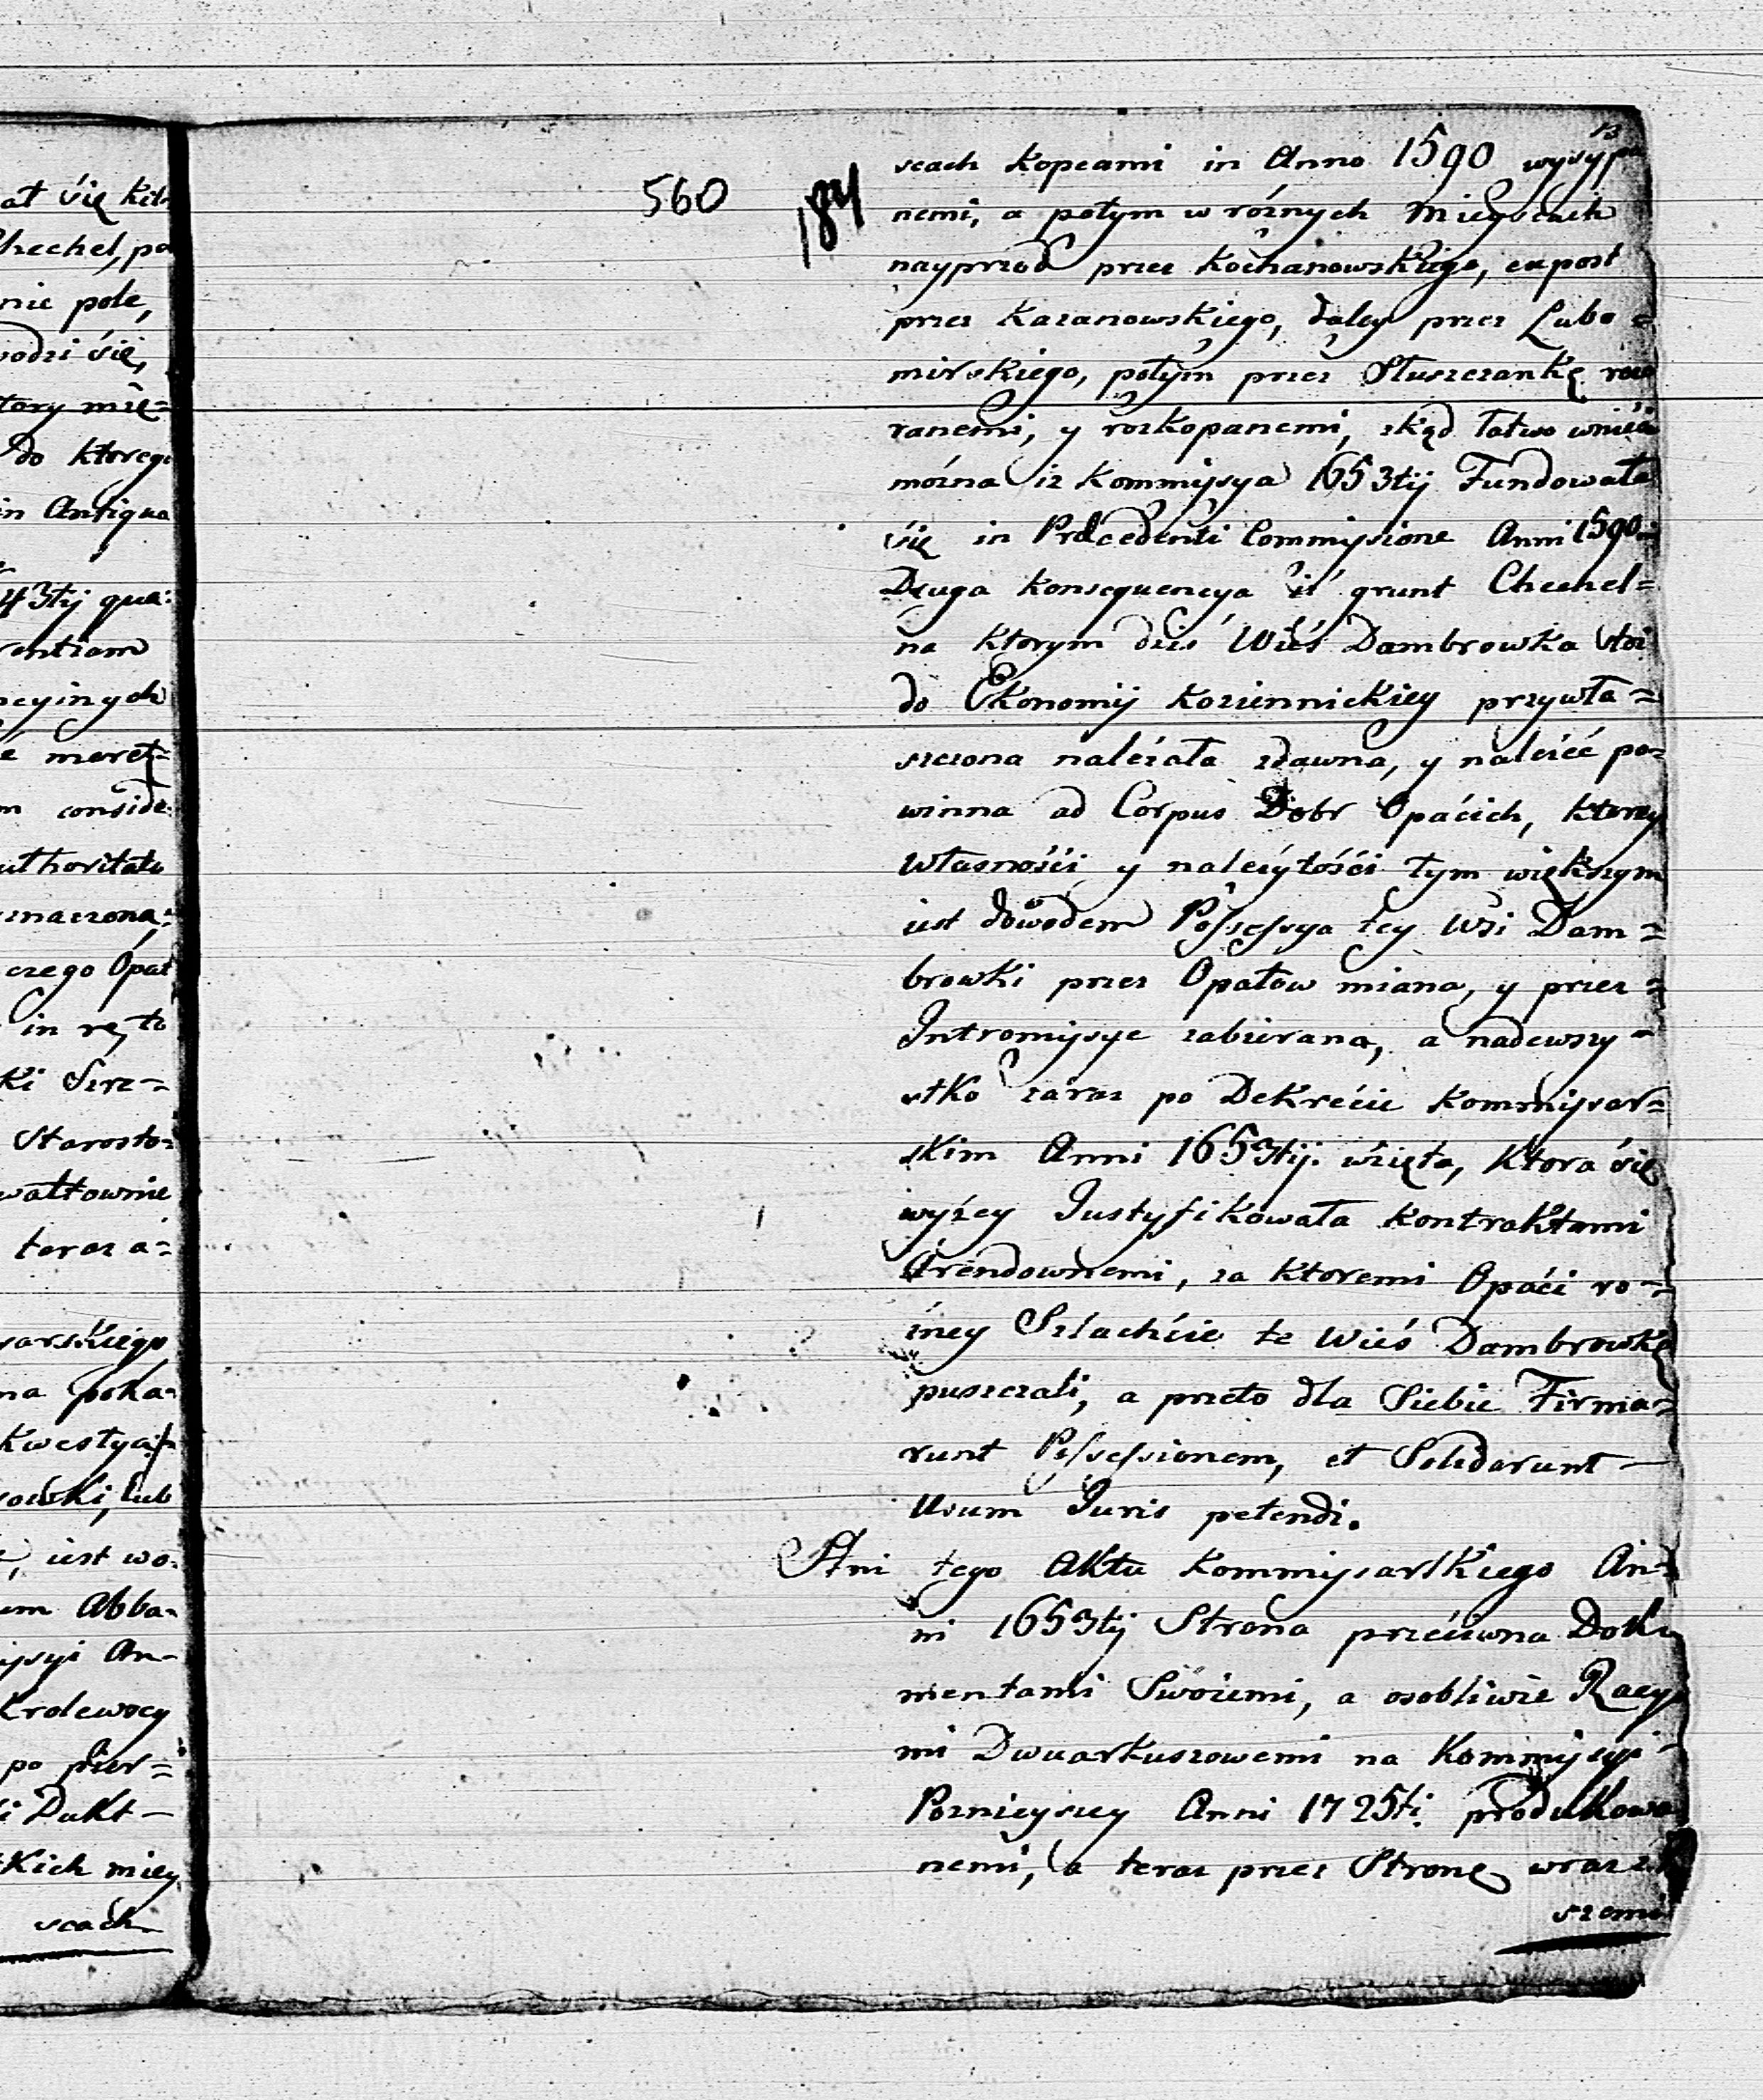 at się kil
Chechel, po
nie pole,
wodzi się,
tory mię=
do ktorego
in Antiqua
43tij qua:
rentiam
ncyinych
e meret=
m conside:
uthoritate
znaczona:
czego Opat
in rę to
ki Szrz=
Starosto=
wałtownie
teraz a=
sarskiego
na poka=
kwestya
rowki, lub
iest wo:
em Abba=
ijsyi An=
Krolewscy
po pier=
i Dukt—
kich miey
scach
560
184
13
scach kopcami in Anno 1590 wysypa
nemi, a potym w róznych mieyscach
nayprzod przez Kochanowskiego, expost
przez Kazanowskiego, daley przez Lubo=
mirskiego, potym przez Słuszczankę roze
ranemi, y rozkopanemi, zkąd łatwo wnieść
mózna iz kommijsya 1653tij Fundowała
się in Praecedenti Commijsione Anni 1590.
Druga konsequencya iż grunt Chechel=
na ktorym dziś Wieś Dambrowka stoi
do Ekonomij koziennickiey przywła=
szczona należała zdawna, y należeć po=
winna ad Corpus Dobr Opacich, ktorey
własności y należytości tym większym
iest dowodem Possessya tey Wsi Dam=
browki przez Opatow miana, y przez=
Intromisye zabierana, a nadewszy=
stko zaraz po Dekrecie kommijsar=
skim Anni 1653tij. wzięta, Ktora się
wyżey Justyfikowała kontraktami
Arendownemi, za ktoremi Opaci ro=
żney Szlachcie te Wieś Dambrowkę
puszczali, a przeto dla Siebie Firma=
runt Possessionem, et Solidarunt—
Usum Juris petendi.
Stni tego Aktu kommijsarskiego An=
ni 1653tij Strona przeciwna Doku
mentami Swoiemi, a osobliwie Racya
mi Dwuarkuszowemi na kommijsyi
Poznieyszey Anni 1725ti. produkowa
nemi, a teraz przez Stronę wraz z
szemi